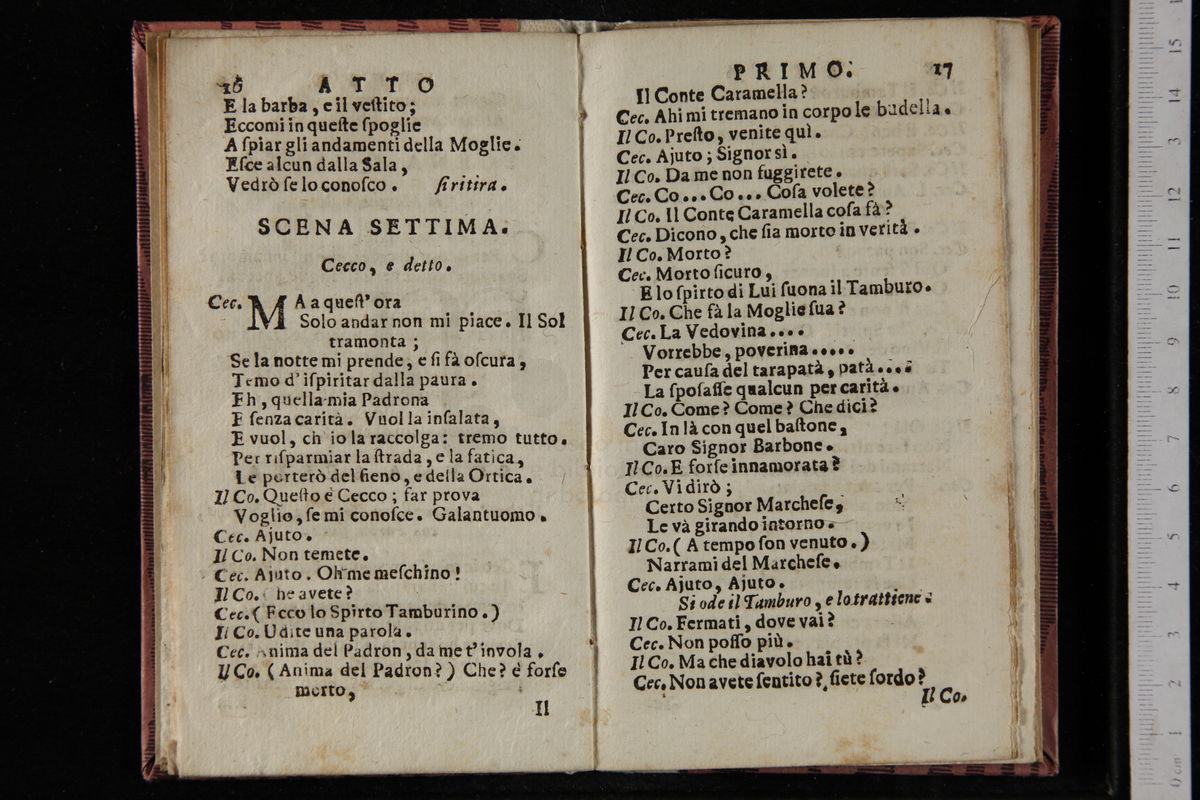 16 ATTO
E la barba, e il veſtito;
Eccomi in queſte ſpoglie
A ſpiar gli andamenti della Moglie.
Eſce alcun dalla Sala,
Vedrò ſe lo conoſco. ſi ritira.
SCENA SETTIMA.
Cecco, e detto.
Cec. MA a queſt' ora
Solo andar non mi piace. Il Sol
tramonta;
Se la notte mi prende, e ſi fà oſcura,
Temo d' iſpiritar dalla paura.
Eh, quella mia Padrona
E ſenza carità. Vuol la inſalata,
E vuol, ch' io la raccolga: tremo tutto.
Per riſparmiar la ſtrada, e la fatica,
Le porterò del fieno, e della Ortica.
Il Co. Queſto è Cecco; far prova
Voglio, ſe mi conoſce. Galantuomo.
Cec. Ajuto.
Il Co. Non temete.
Cec. Ajuto. Oh me meſchino!
Il Co. Che avete?
Cec. (Ecco lo Spirto Tamburino.)
Il Co. Udite una parola.
Cec. Anima del Padron, da me t' invola.
Il Co. (Anima del Padron?) Che? è forſe
morto,
Il
PRIMO. 17
Il Conte Caramella?
Cec. Ahi mi tremano in corpo le budella.
Il Co. Preſto, venite quì.
Cec. Ajuto; Signor sì.
Il Co. Da me non fuggirete.
Cec. Co... Co... Coſa volete?
Il Co. Il Conte Caramella coſa fà?
Cec. Dicono, che ſia morto in verità.
Il Co. Morto?
Cec. Morto ſicuro,
E lo ſpirto di Lui ſuona il Tamburo.
Il Co. Che fà la Moglie ſua?
Cec. La Vedovina....
Vorrebbe, poverina.....
Per cauſa del tarapatà, patà....
La ſpoſaſſe qualcun per carità.
Il Co. Come? Come? Che dici?
Cec. In là con quel baſtone,
Caro Signor Barbone.
Il Co. E forſe innamorata?
Cec. Vi dirò;
Certo Signor Marcheſe,
Le và girando intorno.
Il Co. (A tempo ſon venuto.)
Narrami del Marcheſe.
Cec. Ajuto, Ajuto.
Si ode il Tamburo, e lo trattiene.
Il Co. Fermati, dove vai?
Cec. Non poſſo più.
Il Co. Ma che diavolo hai tù?
Cec. Non avete ſentito? ſiete ſordo?
Il Co.
0 cm 1 2 3 4 5 6 7 8 9 10 11 12 13 14 15